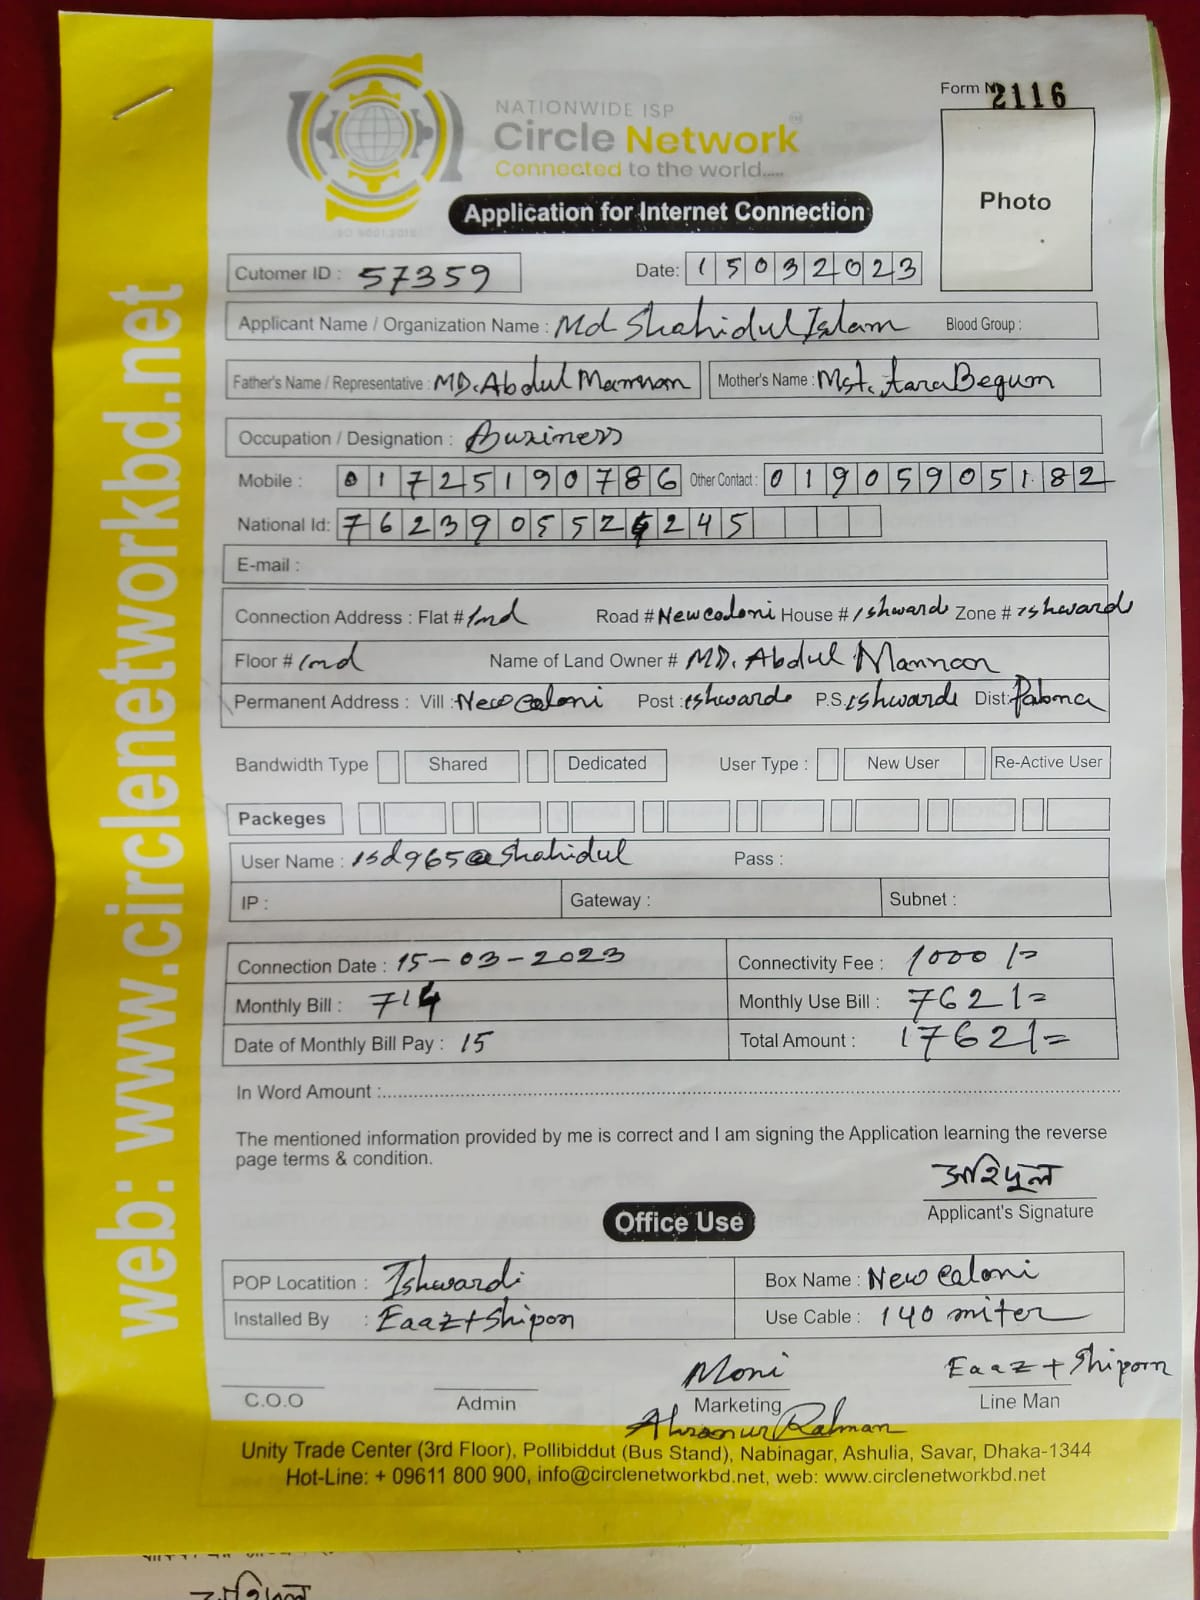 web: www.circlenetworkbd.net
Form N 2116
NATIONWIDE ISP
Circle Network
Connected to the world.....
Application for Internet Connection
Photo
Cutomer ID : 57359
Date: 15032023
Applicant Name / Organization Name : Md Shahidul Islam Blood Group :
Father's Name / Representative : MD. Abdul Mannan Mother's Name : Mst. tara Begum
Occupation / Designation : Business
Mobile : 01725190786 Other Contact : 01905905182
National Id: 762390552 245
E-mail :
Connection Address : Flat # 1nd Road # New caloni House # ishwardi Zone # ishwardi
Floor # 1nd Name of Land Owner # MD. Abdul Mannan
Permanent Address : Vill : New caloni Post : ishwardi P.S. ishwardi Dist: Pabna
Bandwidth Type Shared Dedicated User Type : New User Re-Active User
Packeges
User Name : isd965@shahidul Pass :
IP : Gateway : Subnet :
Connection Date : 15-03-2023 Connectivity Fee : 1000/=
Monthly Bill : 714 Monthly Use Bill : 762/=
Date of Monthly Bill Pay : 15 Total Amount : 1762/=
In Word Amount :
The mentioned information provided by me is correct and I am signing the Application learning the reverse
page terms & condition.
শহিদুল
Applicant's Signature
Office Use
POP Locatition : Ishwardi Box Name : New caloni
Installed By : Eaaz+Shipon Use Cable : 140 miter
Moni Eaaz+Shipon
C.O.O Admin Marketing Line Man
Rahman
Unity Trade Center (3rd Floor), Pollibiddut (Bus Stand), Nabinagar, Ashulia, Savar, Dhaka-1344
Hot-Line: + 09611 800 900, info@circlenetworkbd.net, web: www.circlenetworkbd.net